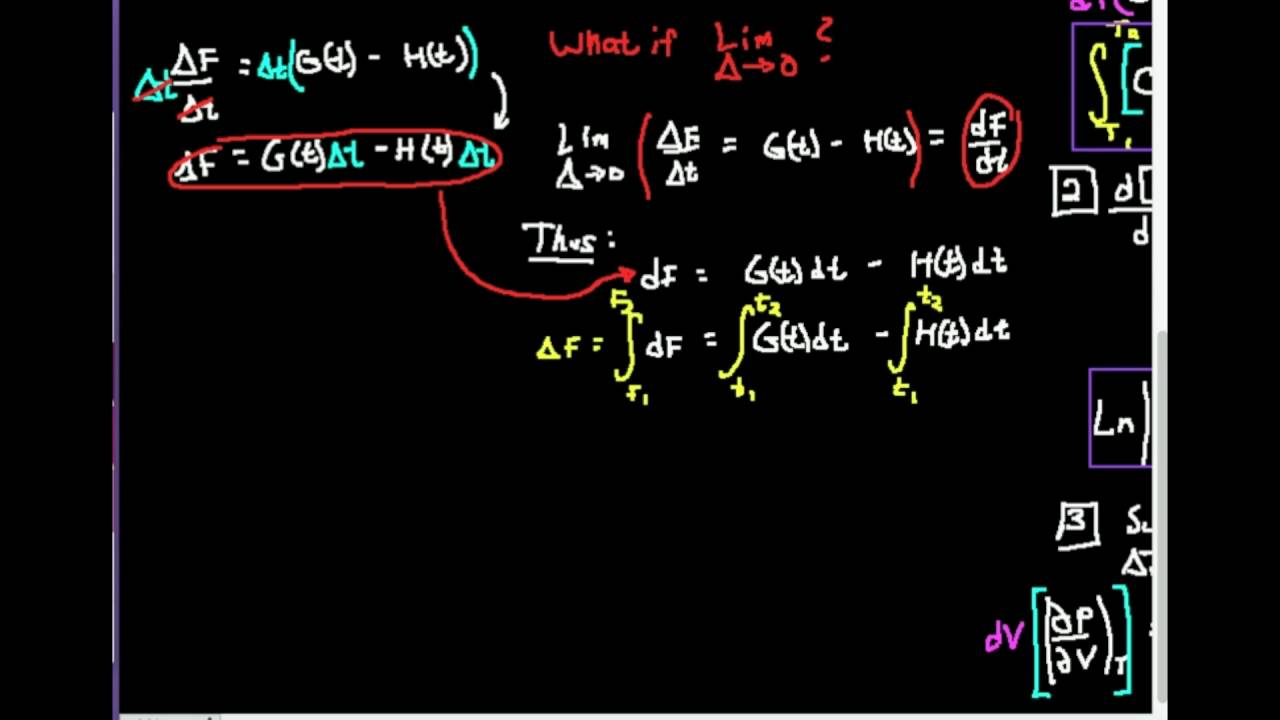 Δt ΔF/Δt = Δt(G(t) - H(t))
dF = G(t)Δt - H(t)Δt
What if Lim Δ→0 ?
Lim Δ→0 (ΔF/Δt = G(t) - H(t)) = dF/dt
Thus:
dF = G(t)dt - H(t)dt
ΔF = ∫F₁F₂ dF = ∫t₁t₂ G(t)dt - ∫t₁t₂ H(t)dt
∫T₁T₂ [
2 d[/d
Ln|
3
dV[(∂P/∂V)T]